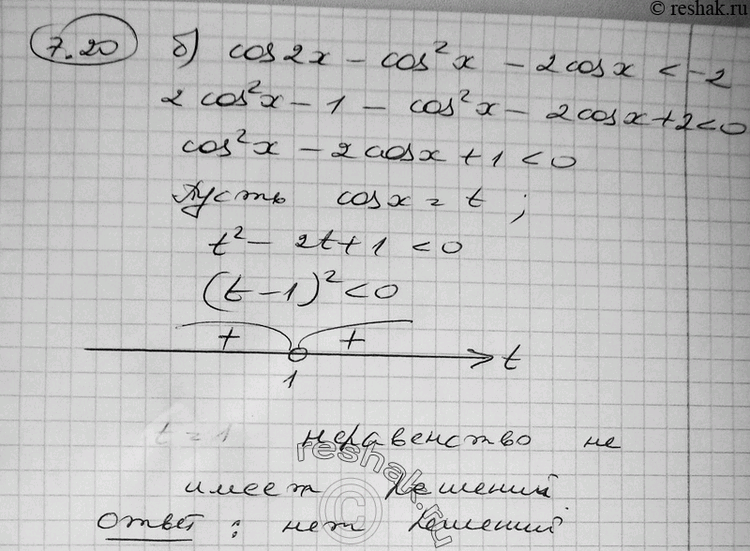 © reshak.ru
7.20 б) cos2x - cos²x - 2cosx < -2
2cos²x - 1 - cos²x - 2cosx + 2 < 0
cos²x - 2cosx + 1 < 0
Пусть cosx = t ;
t² - 2t + 1 < 0
(t - 1)² < 0
+ +
t
1
t = 1 неравенство не
имеет решений.
Ответ : нет решений
reshak.ru
©